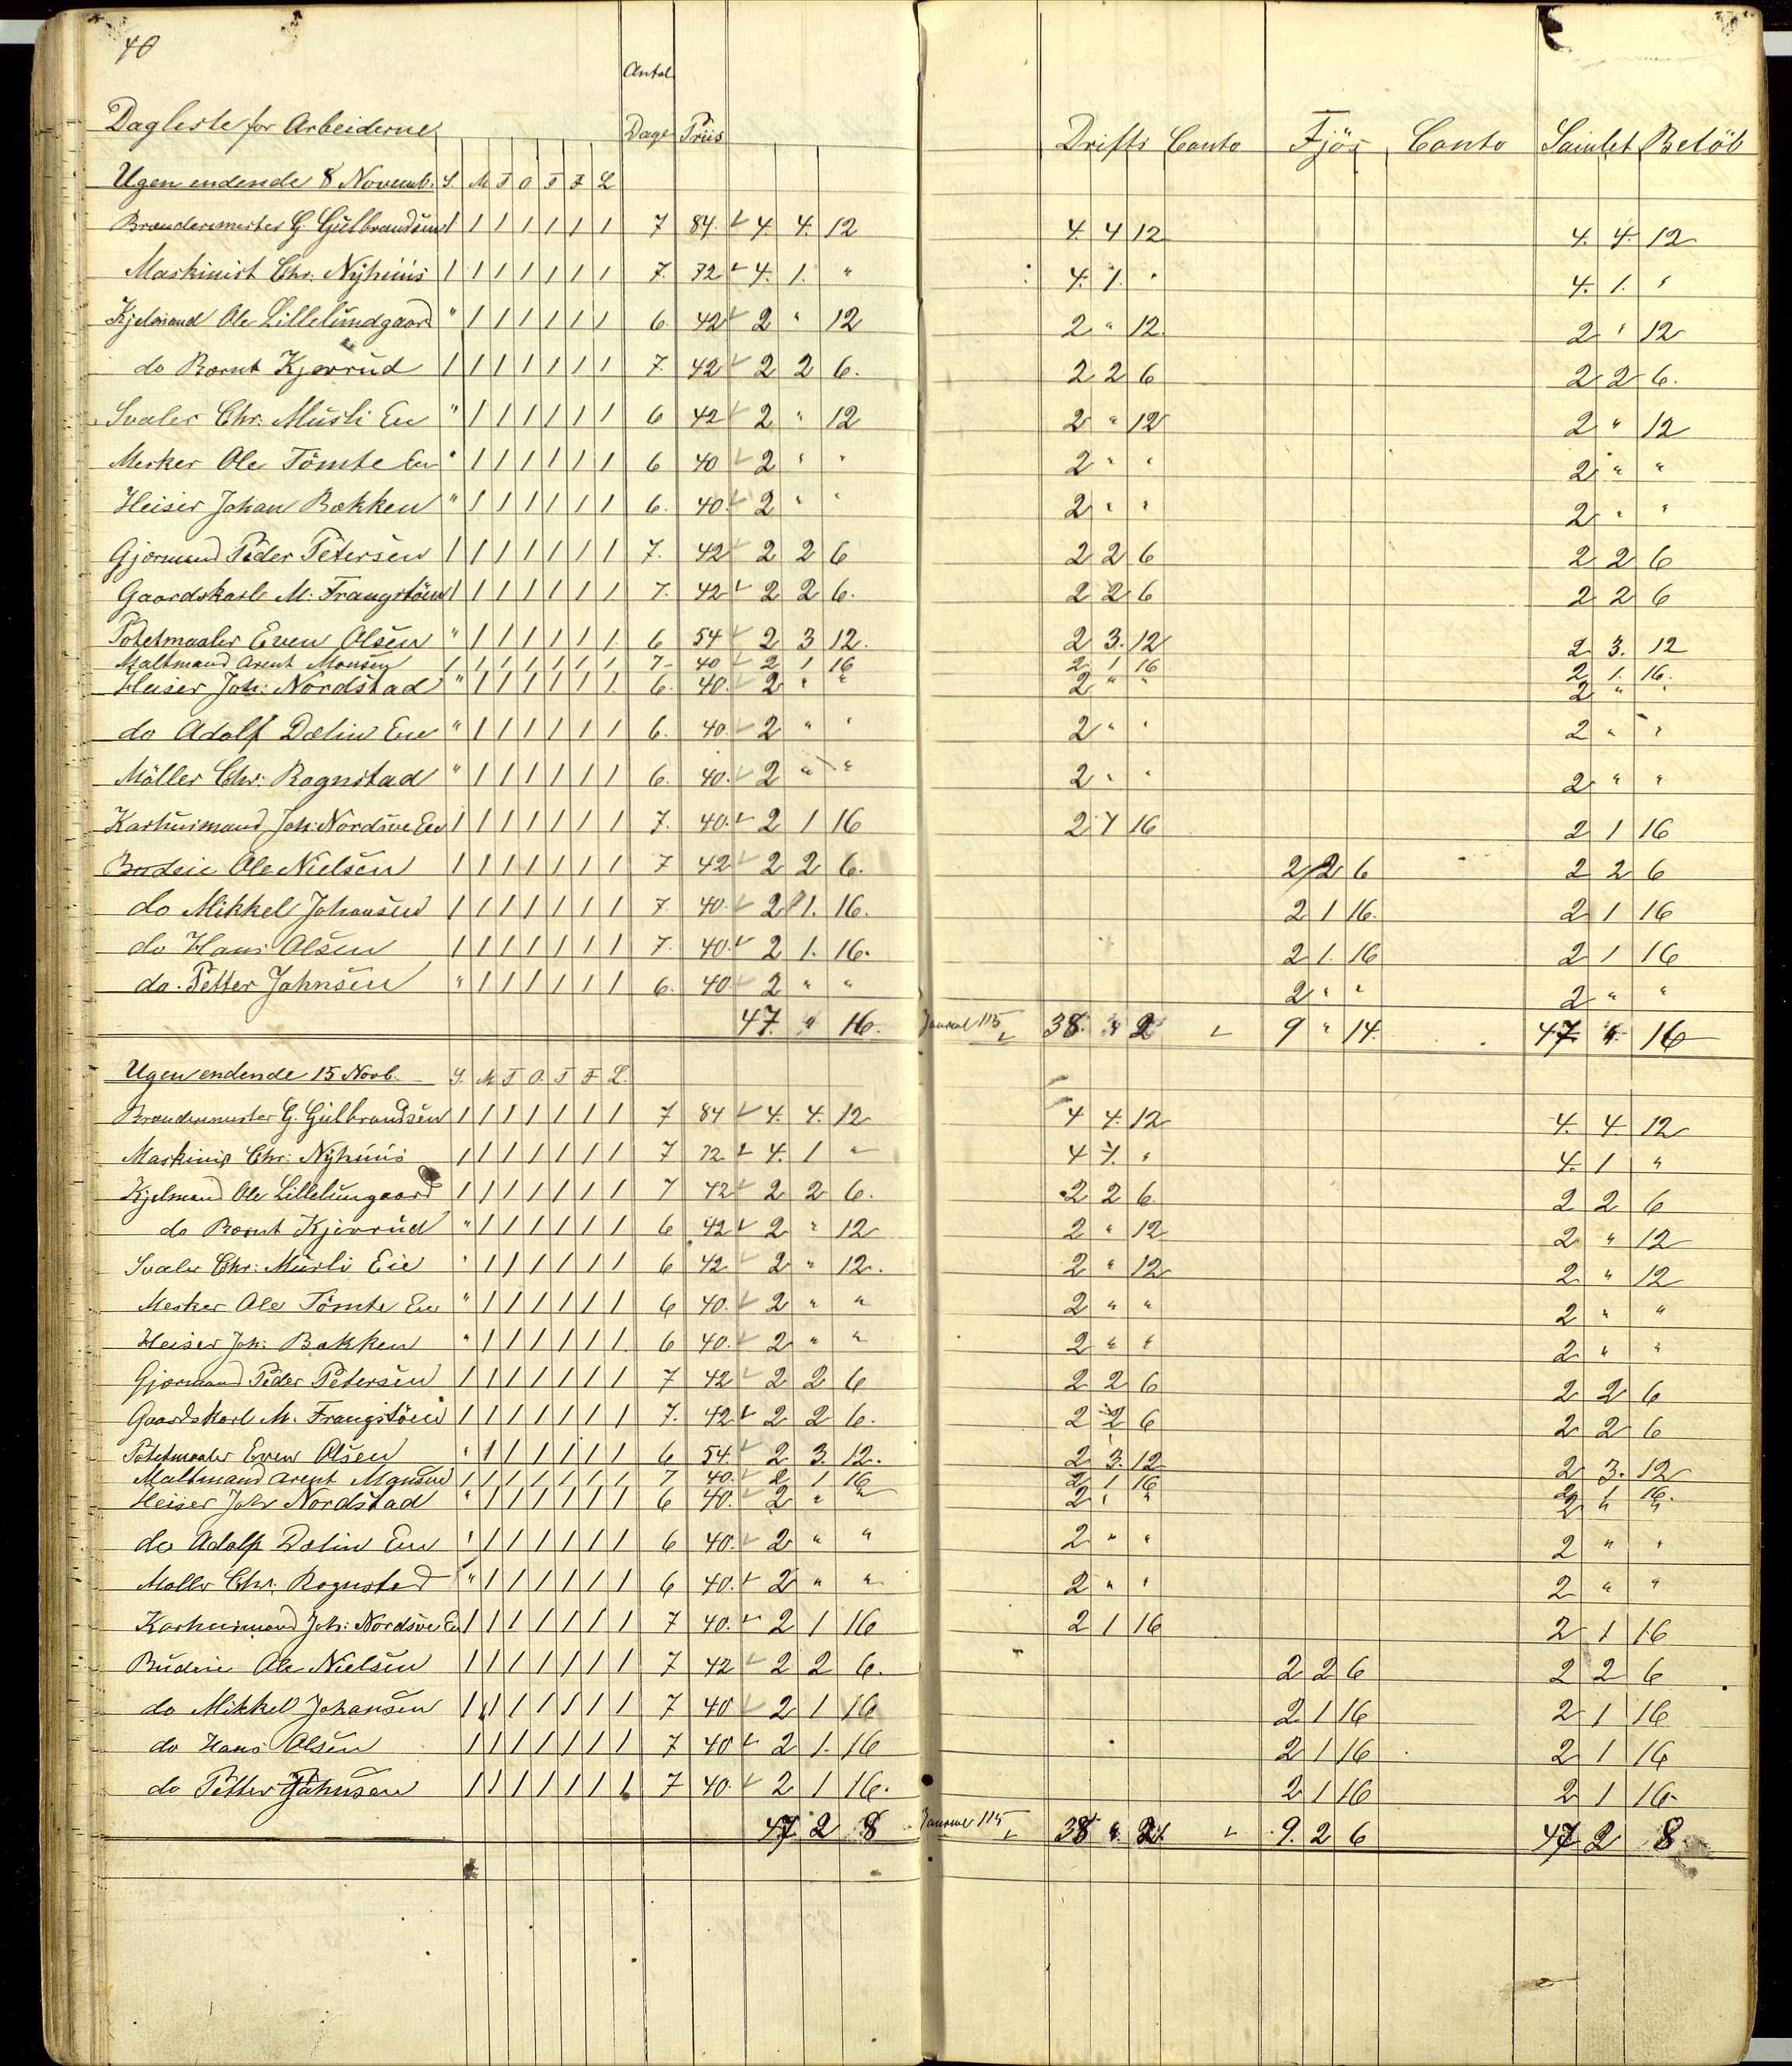 40
Antal
Dagliste for Arbeiderne Dage Priis Drifts Conto Fjös Conto Samlet Belöb
Ugen endende 8 Novemb. S. M T O T F L
Brændermester G Gulbrandsen 1 1 1 1 1 1 1 7 84. 4. 4. 12 4. 4 12 4. 4. 12
Maskinist Chr. Nÿhuus 1 1 1 1 1 1 1 7. 72 4. 1. " 4. 1. " 4. 1. "
Kjelmand Ole Lillelundgaard " 1 1 1 1 1 1 6. 42 2 " 12 2 " 12. 2 " 12
do Bernt Kjerrud 1 1 1 1 1 1 1 7. 42 2 2 6. 2 2 6 2 2 6.
Svaler Chr. Musli Eie " 1 1 1 1 1 1 6 42 2 " 12 2 " 12 2 " 12
Mesker Ole Tömte Eie " 1 1 1 1 1 1 6 40 2 " " 2 " " 2 " "
Heiser Johan Bakken " 1 1 1 1 1 1 6. 40. 2 " " 2 " " 2 " "
Gjærmand Peder Petersen 1 1 1 1 1 1 1 7. 42 2 2 6 2 2 6 2 2 6
Gaardskarl M. Frangstöen 1 1 1 1 1 1 1 7. 42 2 2 6. 2 2 6 2 2 6
Potetmaaler Even Olsen " 1 1 1 1 1 1 6 54 2 3 12. 2 3. 12 2 3. 12
Maltmand Arent Monsen 1 1 1 1 1 1 1 7- 40 2 1 16 2. 1 16 2 1. 16.
Heiser Joh: Nordstad " 1 1 1 1 1 1 6. 40. 2 " " 2 " " 2 " "
do Adolf Dælin Eie " 1 1 1 1 1 1 6. 40. 2 " " 2 " " 2 " "
Möller Chr. Rognstad " 1 1 1 1 1 1 6. 40. 2 " " 2 " " 2 " "
Karhusmand Joh: Nordsve Eie 1 1 1 1 1 1 1 7. 40. 2 1 16 2 1 16 2 1 16
Budeie Ole Nielsen 1 1 1 1 1 1 1 7 42 2 2 6. 2 2 6 2 2 6
do Mikkel Johansen 1 1 1 1 1 1 1 7. 40. 2 1. 16. 2 1 16. 2 1 16
do Hans Olsen 1 1 1 1 1 1 1 7. 40. 2 1. 16. 2 1. 16 2 1 16
do. Petter Johnsen " 1 1 1 1 1 1 6. 40 2 " " 2 " " 2 " "
47. " 16. Journal 115 38. " 2 9 " 14. 47. " 16
Ugen endende 15 Novb. S. M T O. T F L.
Brændermester G. Gulbrandsen 1 1 1 1 1 1 1 7 84 4. 4. 12 4 4. 12 4. 4. 12
Maskinist Chr. Nÿhuus 1 1 1 1 1 1 1 7 72 4. 1 " 4 1. " 4. 1 "
Kjelmand Ole Lillelungaard 1 1 1 1 1 1 1 7 42 2 2 6. 2 2 6. 2 2 6
do Bernt Kjerrud " 1 1 1 1 1 1 6 42 2 " 12 2 " 12 2 " 12
Svaler Chr. Musli Eie " 1 1 1 1 1 1 6 42 2 " 12. 2 " 12 2 " 12
Mesker Ole Tömte Eie " 1 1 1 1 1 1 6 40. 2 " " 2 " " 2 " "
Heiser Joh: Bakken " 1 1 1 1 1 1 6 40. 2 " " 2 " " 2 " "
Gjærmand Peder Petersen 1 1 1 1 1 1 1 7 42 2 2 6 2 2 6 2 2 6
Gaardskarl M. Frangstöen 1 1 1 1 1 1 1 7. 42 2 2 6. 2 2 6 2 2 6
Potetmaaler Even Olsen " 1 1 1 1 1 1 6 54. 2 3. 12. 2 3. 12 2 3. 12
Maltmand Arent Monsen 1 1 1 1 1 1 1 7 40. 2 1 16 2 1 16 2 1 16.
Heiser Joh: Nordstad " 1 1 1 1 1 1 6 40. 2 " " 2 " " 2 " "
do Adolf Dælin Eie " 1 1 1 1 1 1 6 40. 2 " " 2 " " 2 " "
Möller Chr. Rognstad " 1 1 1 1 1 1 6 40. 2 " " 2 " " 2 " "
Karhusmand Joh: Nordsve Eie 1 1 1 1 1 1 1 7 40. 2 1 16 2 1 16 2 1 16
Budeie Ole Nielsen 1 1 1 1 1 1 1 7 42 2 2 6. 2 2 6 2 2 6
do Mikkel Johansen 1 1 1 1 1 1 1 7 40 2 1 16 2 1 16 2 1 16
do Hans Olsen 1 1 1 1 1 1 1 7 40 2 1. 16 2 1 16 2 1 16
do Petter Johnsen 1 1 1 1 1 1 1 7 40. 2 1 16. 2 1 16 2 1 16.
47 2 8 Journal 115 38 " 2 9. 2 6 47 2 8.